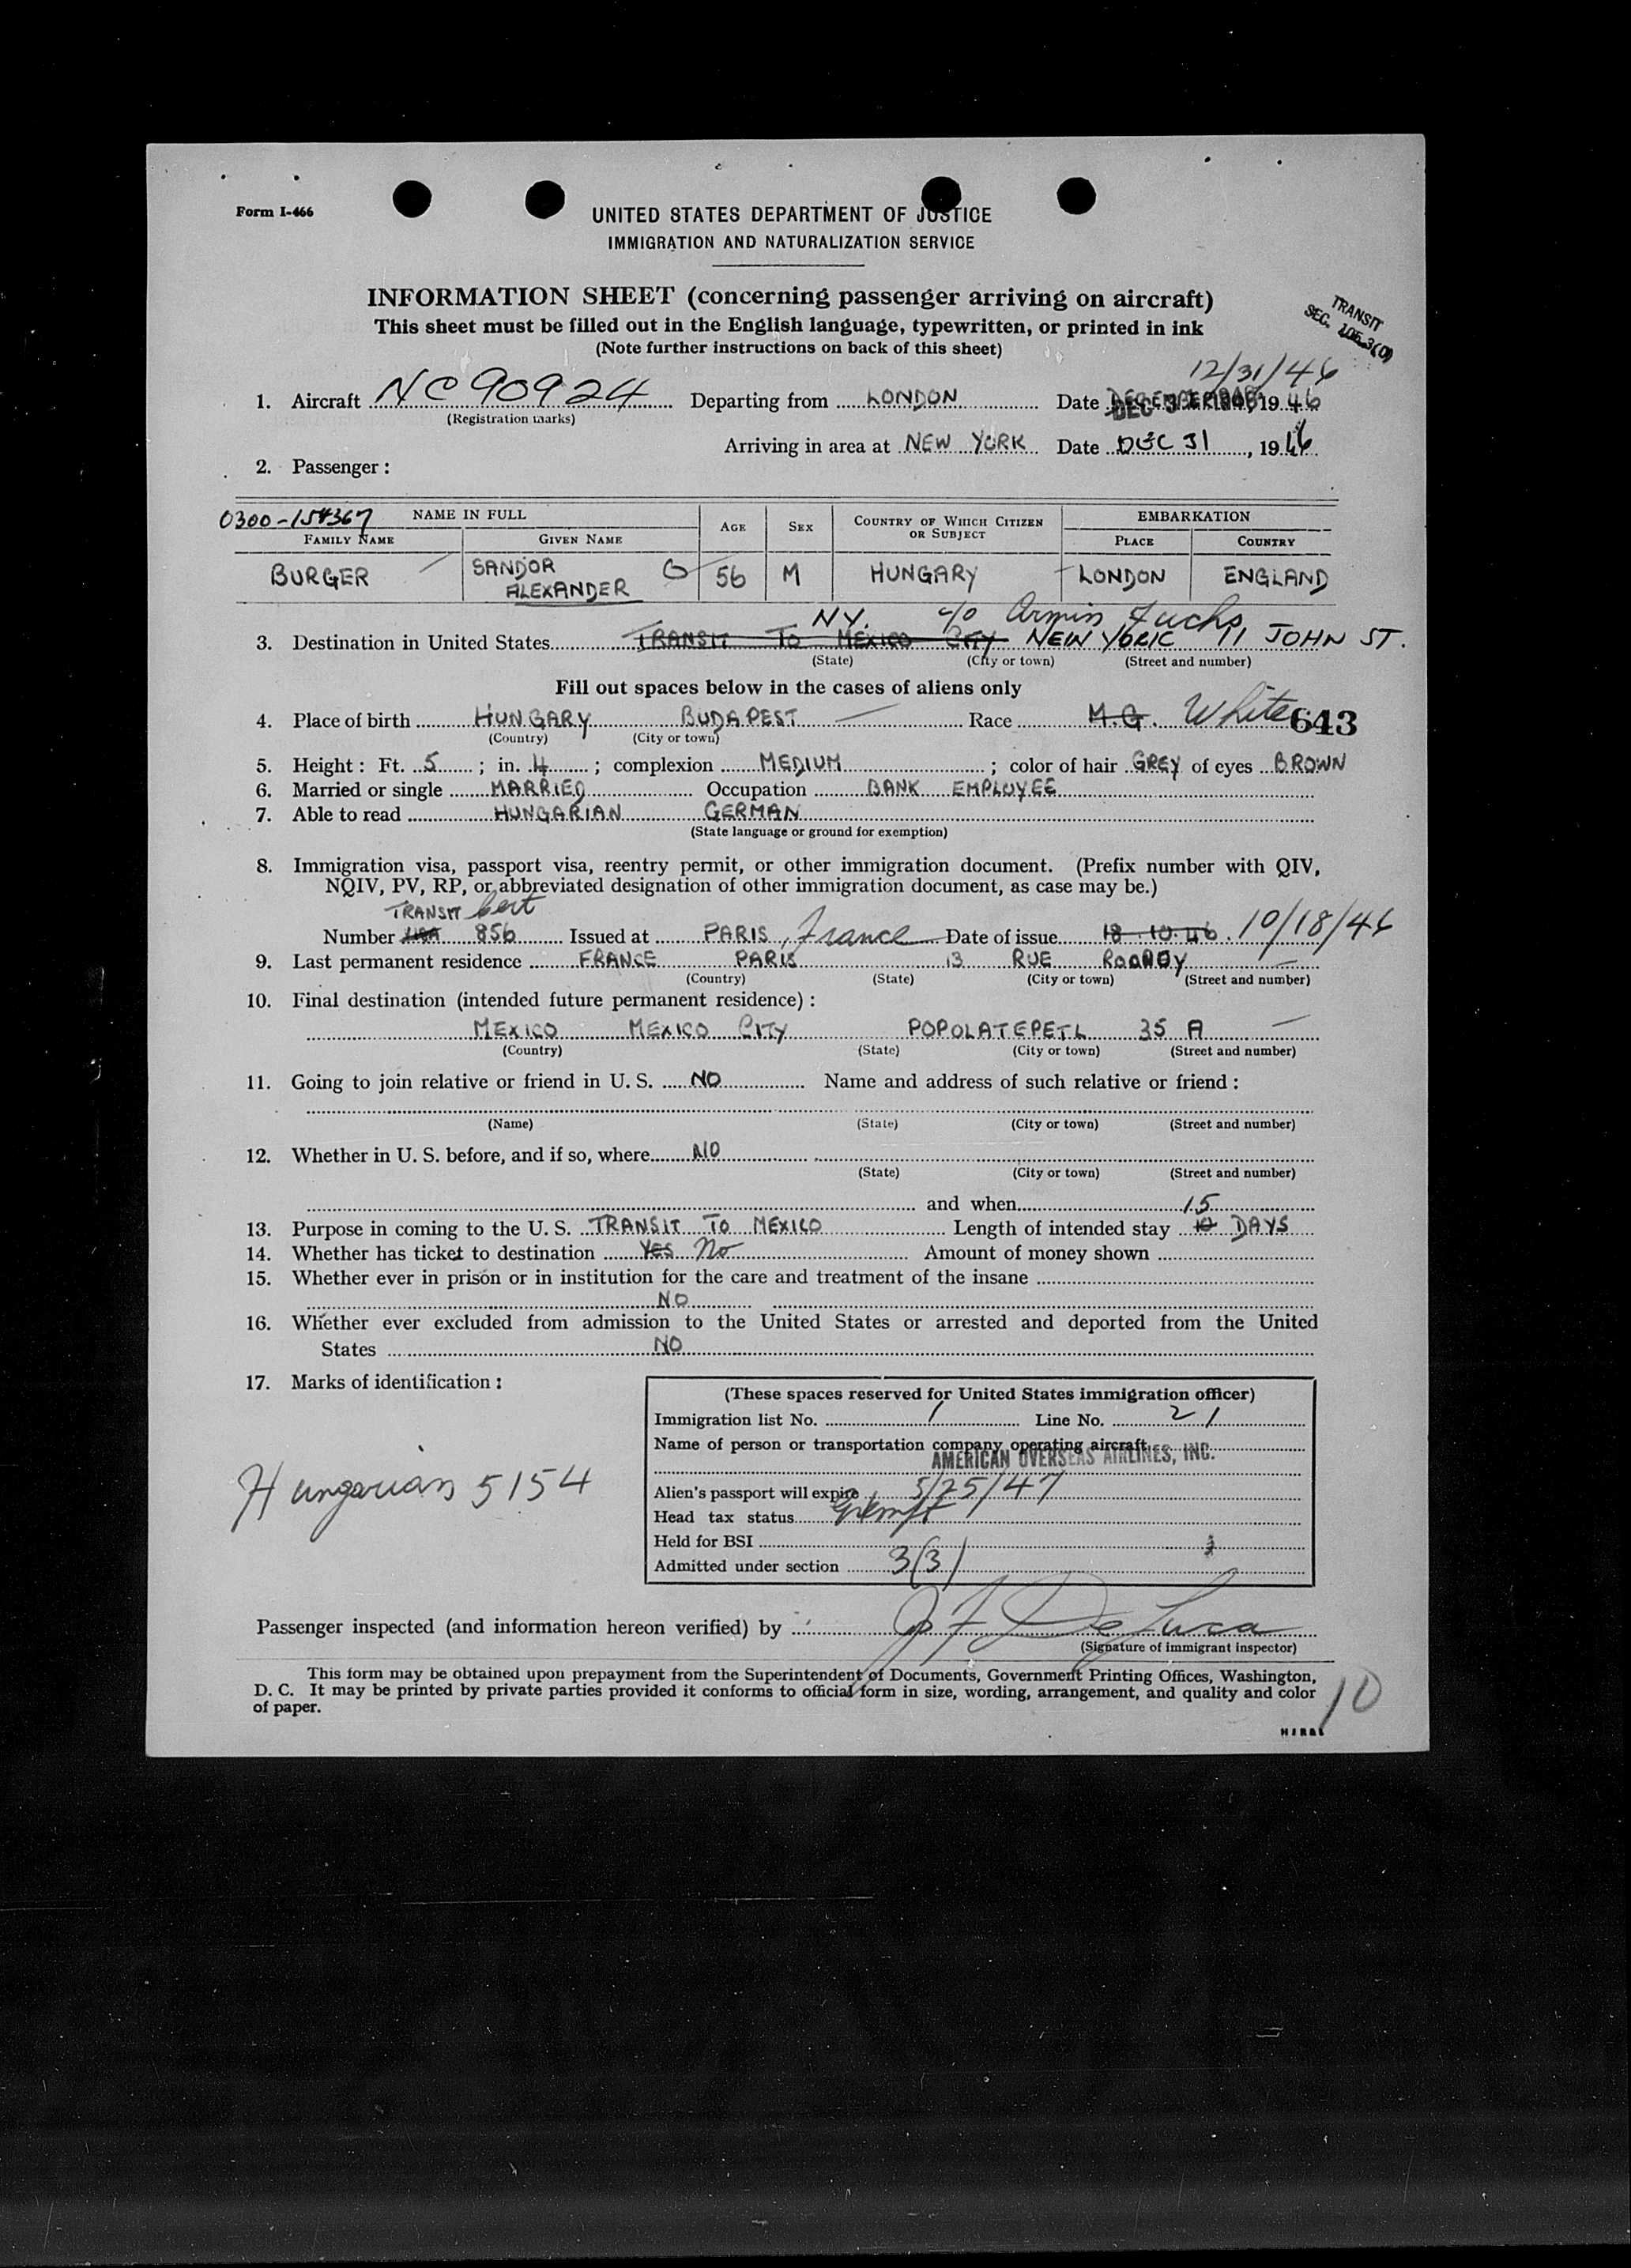 Form I-466
UNITED STATES DEPARTMENT OF JUSTICE
IMMIGRATION AND NATURALIZATION SERVICE
INFORMATION SHEET (concerning passenger arriving on aircraft)
This sheet must be filled out in the English language, typewritten, or printed in ink
(Note further instructions on back of this sheet)
TRANSIT
SEC. 105.3(0)
12/31/46
1. Aircraft NC90924 Departing from LONDON Date DEC 31 1946
(Registration marks)
Arriving in area at NEW YORK Date DEC 31, 1946
2. Passenger:
0300-154367 NAME IN FULL AGE SEX COUNTRY OF WHICH CITIZEN OR SUBJECT EMBARKATION
FAMILY NAME GIVEN NAME PLACE COUNTRY
BURGER SANDOR ALEXANDER G 56 M HUNGARY LONDON ENGLAND
N.Y. c/o Armin Fuchs
3. Destination in United States TRANSIT TO MEXICO CITY NEW YORK 11 JOHN ST.
(State) (City or town) (Street and number)
Fill out spaces below in the cases of aliens only
4. Place of birth HUNGARY BUDAPEST Race M.G. White 643
(Country) (City or town)
5. Height: Ft. 5; in. 4; complexion MEDIUM; color of hair GREY of eyes BROWN
6. Married or single MARRIED Occupation BANK EMPLOYEE
7. Able to read HUNGARIAN GERMAN
(State language or ground for exemption)
8. Immigration visa, passport visa, reentry permit, or other immigration document. (Prefix number with QIV,
NQIV, PV, RP, or abbreviated designation of other immigration document, as case may be.)
TRANSIT Cert
Number 856 Issued at PARIS, France Date of issue 18.10.46. 10/18/46
9. Last permanent residence FRANCE PARIS 13 RUE
(Country) (State) (City or town) (Street and number)
10. Final destination (intended future permanent residence):
MEXICO MEXICO CITY POPOLATEPETL 35 A
(Country) (State) (City or town) (Street and number)
11. Going to join relative or friend in U. S. NO Name and address of such relative or friend:
(Name) (State) (City or town) (Street and number)
12. Whether in U. S. before, and if so, where NO
(State) (City or town) (Street and number)
and when
13. Purpose in coming to the U. S. TRANSIT TO MEXICO Length of intended stay 10 15 DAYS
14. Whether has ticket to destination YES No Amount of money shown
15. Whether ever in prison or in institution for the care and treatment of the insane
NO
16. Whether ever excluded from admission to the United States or arrested and deported from the United
States NO
17. Marks of identification:
Hungarian 5154
(These spaces reserved for United States immigration officer)
Immigration list No. 1 Line No. 21
Name of person or transportation company operating aircraft
AMERICAN OVERSEAS AIRLINES, INC.
Alien's passport will expire 5/25/47
Head tax status Exempt
Held for BSI
Admitted under section 3(3)
Passenger inspected (and information hereon verified) by J F DeLuca
(Signature of immigrant inspector)
This form may be obtained upon prepayment from the Superintendent of Documents, Government Printing Offices, Washington,
D. C. It may be printed by private parties provided it conforms to official form in size, wording, arrangement, and quality and color
of paper.
10